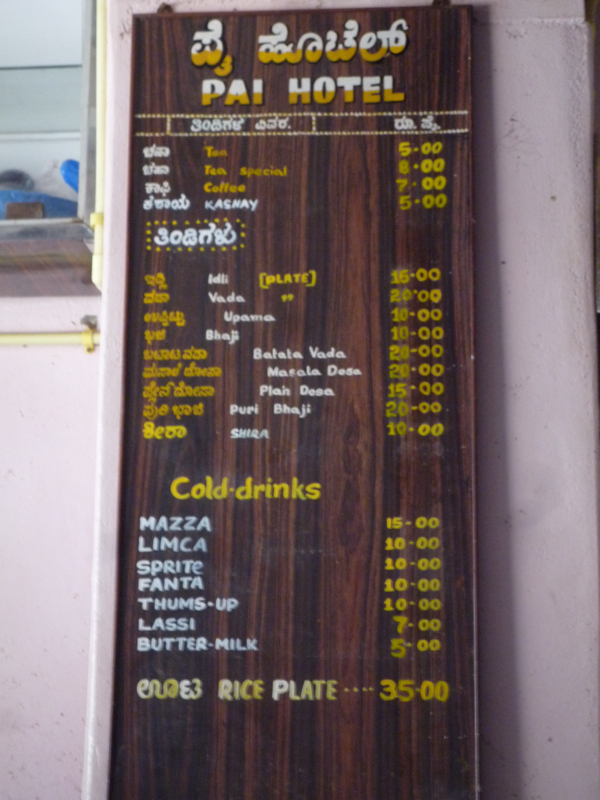 ಪೈ ಹೊಟೆಲ್
PAI HOTEL
ತಿಂಡಿಗಳ ವಿವರ. ರೂ. ಪೈ.
ಚಹಾ Tea 5-00
ಚಹಾ Tea special 8-00
ಕಾಫಿ Coffee 7-00
ಕಶಾಯ KASHAY 5-00
ತಿಂಡಿಗಳು
ಇಡ್ಲಿ Idli [PLATE] 16-00
ವಡಾ Vada " 20-00
ಉಪ್ಪಿಟ್ಟು Upama 10-00
ಭಜಿ Bhaji 10-00
ಬಟಾಟ ವಡಾ Batata Vada 20-00
ಮಸಾಲೆ ದೋಸಾ Masala Dosa 20-00
ಪ್ಲೇನ್ ದೋಸಾ Plain Dosa 15-00
ಪುರಿ ಭಾಜಿ Puri Bhaji 20-00
ಶೀರಾ SHIRA 10-00
Cold-drinks
MAZZA 15-00
LIMCA 10-00
SPRITe 10-00
FANTA 10-00
THUMS-UP 10-00
LASSI 7-00
BUTTER-MILK 5-00
ಊಟ RICE PLATE ···· 35-00